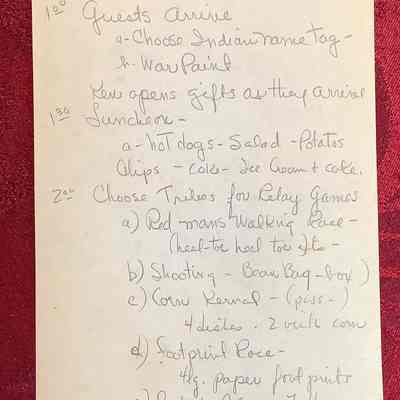 1⁰⁰ Guests Arrive
a - Choose Indian name tag -
b. War Paint
Ken opens gifts as they arrive
1³⁰ Luncheon -
a - hot dogs - Salad - Potatos
Chips - coke - Ice Cream + cake.
2⁰⁰ Choose Tribes for Relay Games
a) Red-mans Walking Race -
(heel-toe heel toe) etc -
b) Shooting - Bean Bag - box)
c) Corn Kernal - (pass -)
4 dishes - 2 with corn
d) Footprint Race -
4 lg. paper foot prints